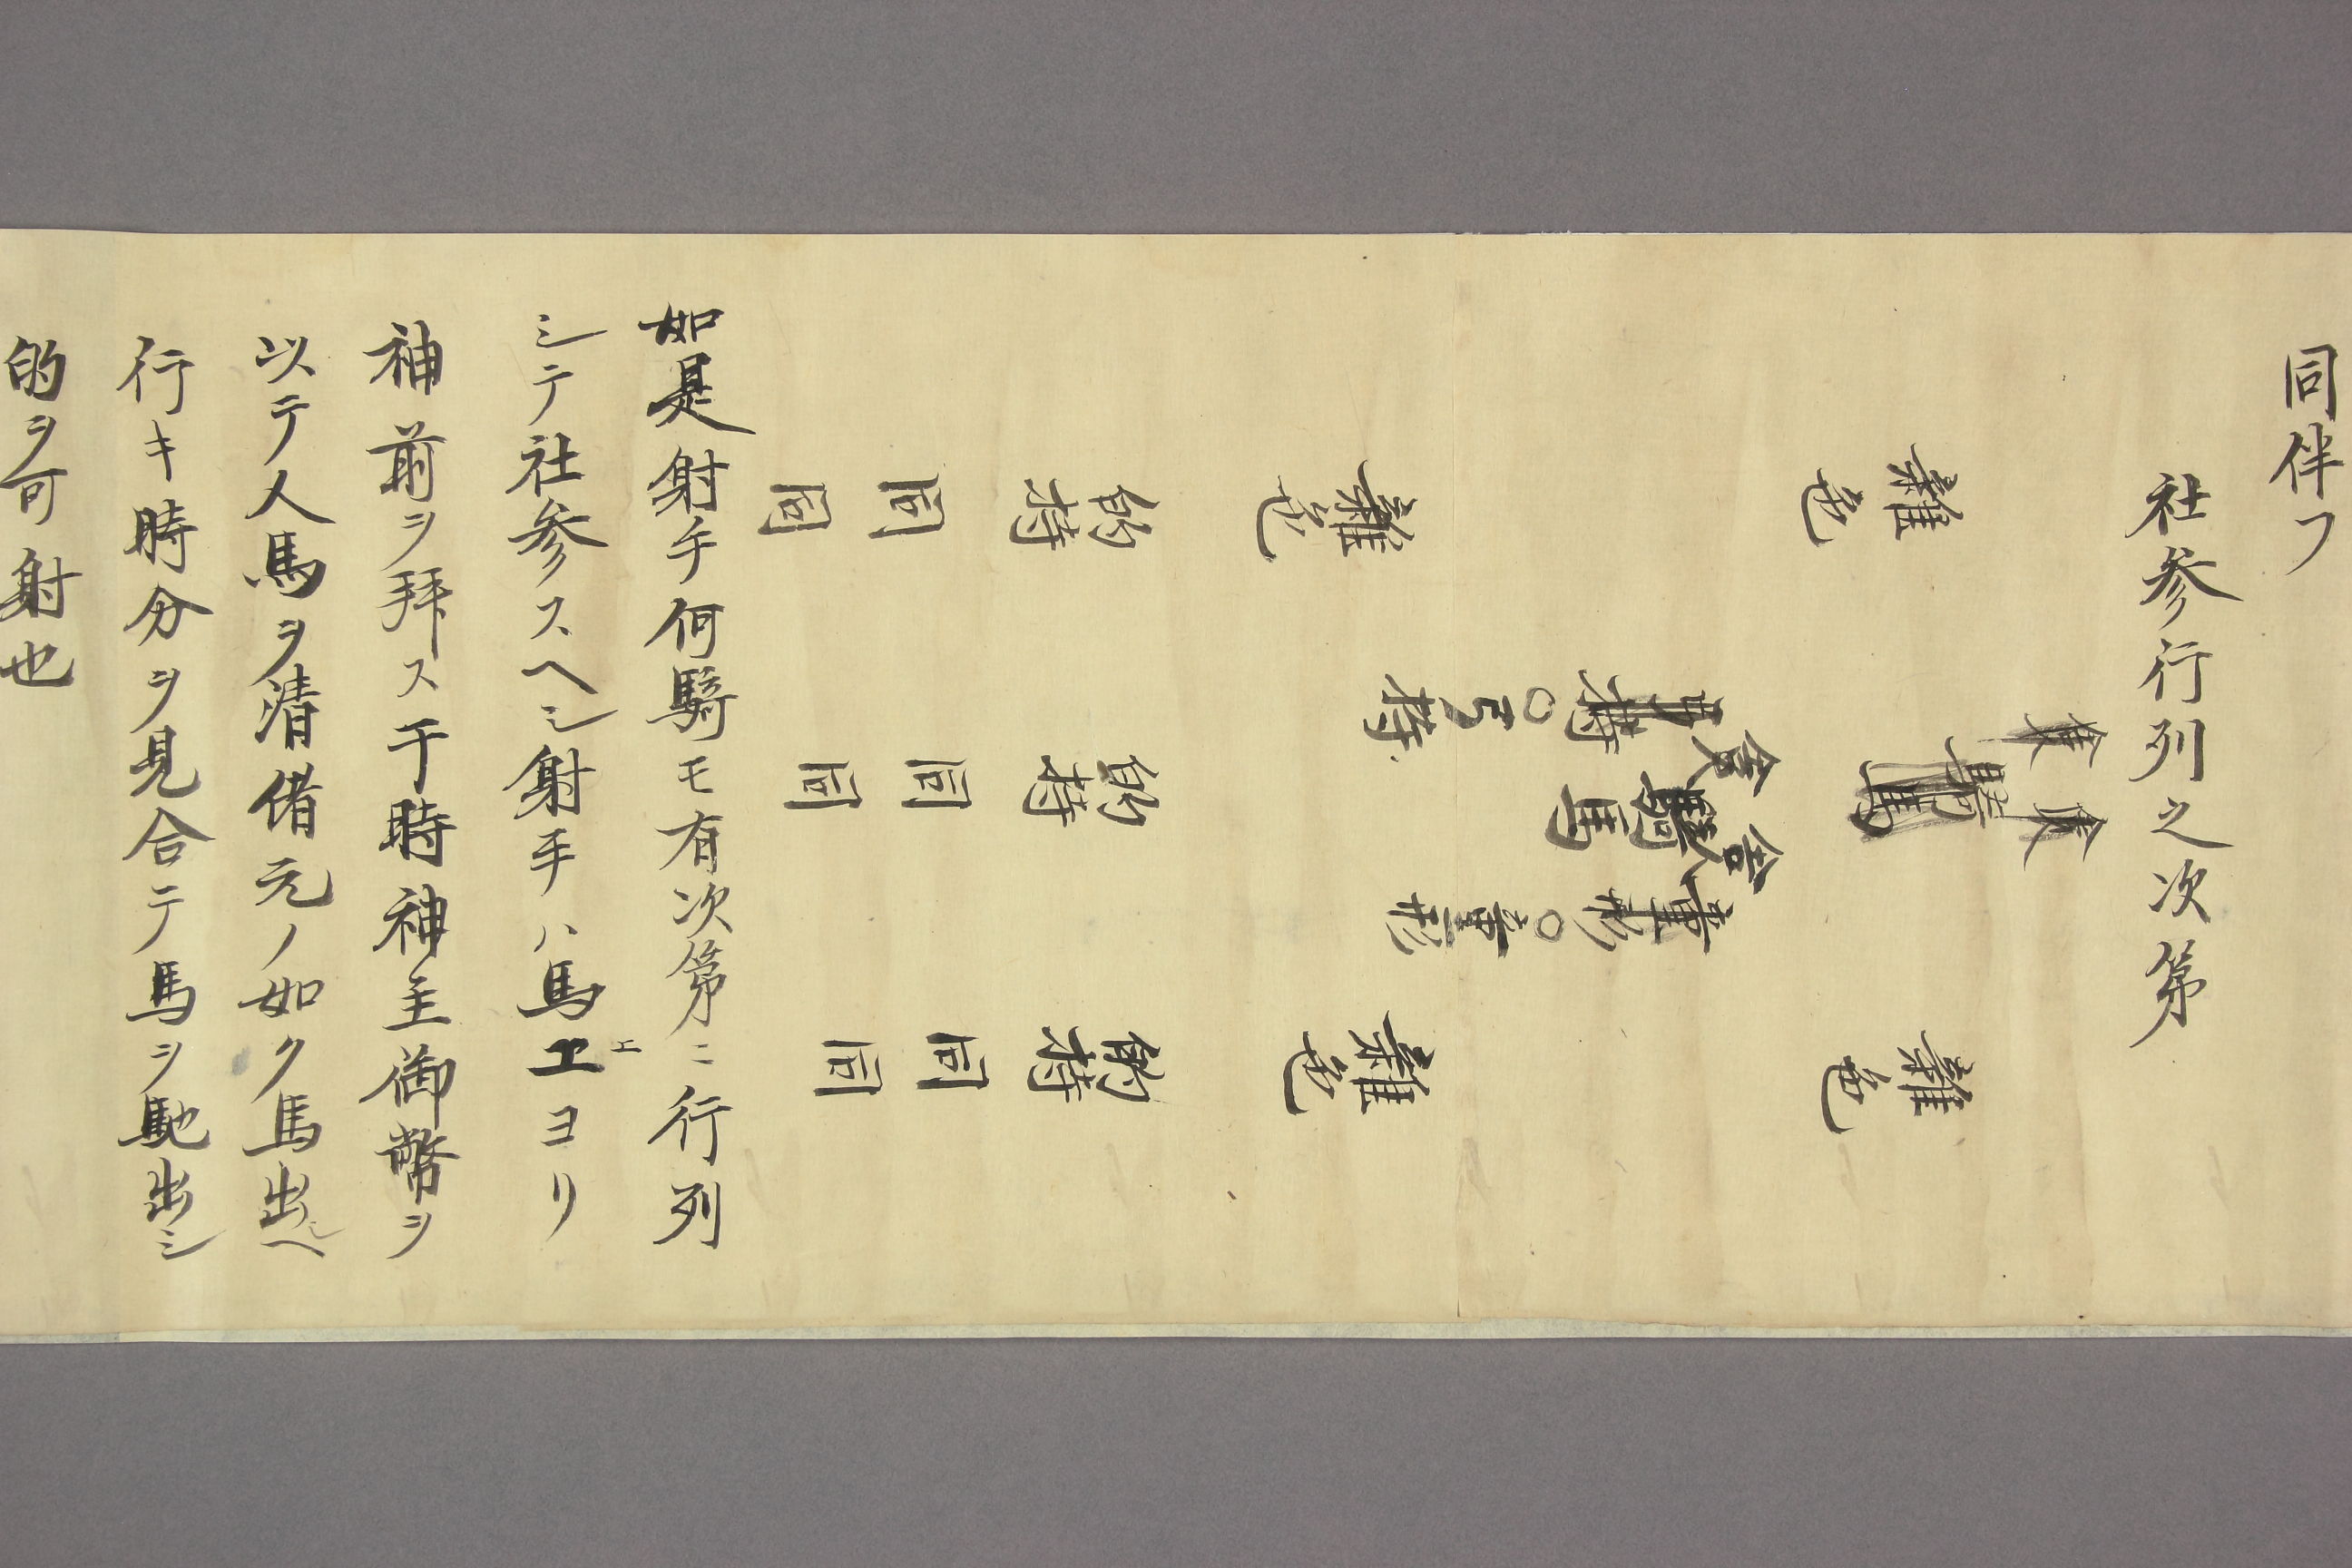 同伴フ
社参行列之次第
雑色
雑色
舎人
舎人
騎馬
弓持
○弓持
○童形
童形
雑色
雑色
的持
的持
的持
同
同
同
同
同
同
如是射手何騎モ有次第ニ行列
シテ社参スヘシ射手ハ馬エヨリ
エ
神前ヲ拝ス于時神主御幣ヲ
以テ人馬ヲ清偖元ノ如ク馬出シヘ
行キ時分ヲ見合テ馬ヲ馳出シ
的ヲ可射也